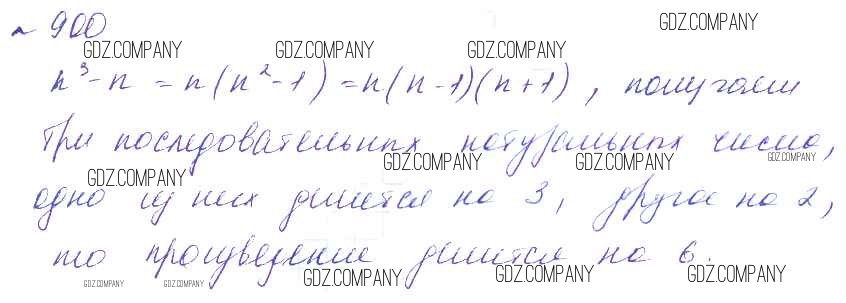 ~ 900
GDZ.COMPANY
GDZ.COMPANY GDZ.COMPANY GDZ.COMPANY
n³-n = n(n²-1) = n(n-1)(n+1), получаем
три последовательных натуральных числа,
GDZ.COMPANY GDZ.COMPANY GDZ.COMPANY
GDZ.COMPANY
одно из них делится на 3, другое на 2,
то произведение делится на 6.
GDZ.COMPANY GDZ.COMPANY GDZ.COMPANY GDZ.COMPANY GDZ.COMPANY